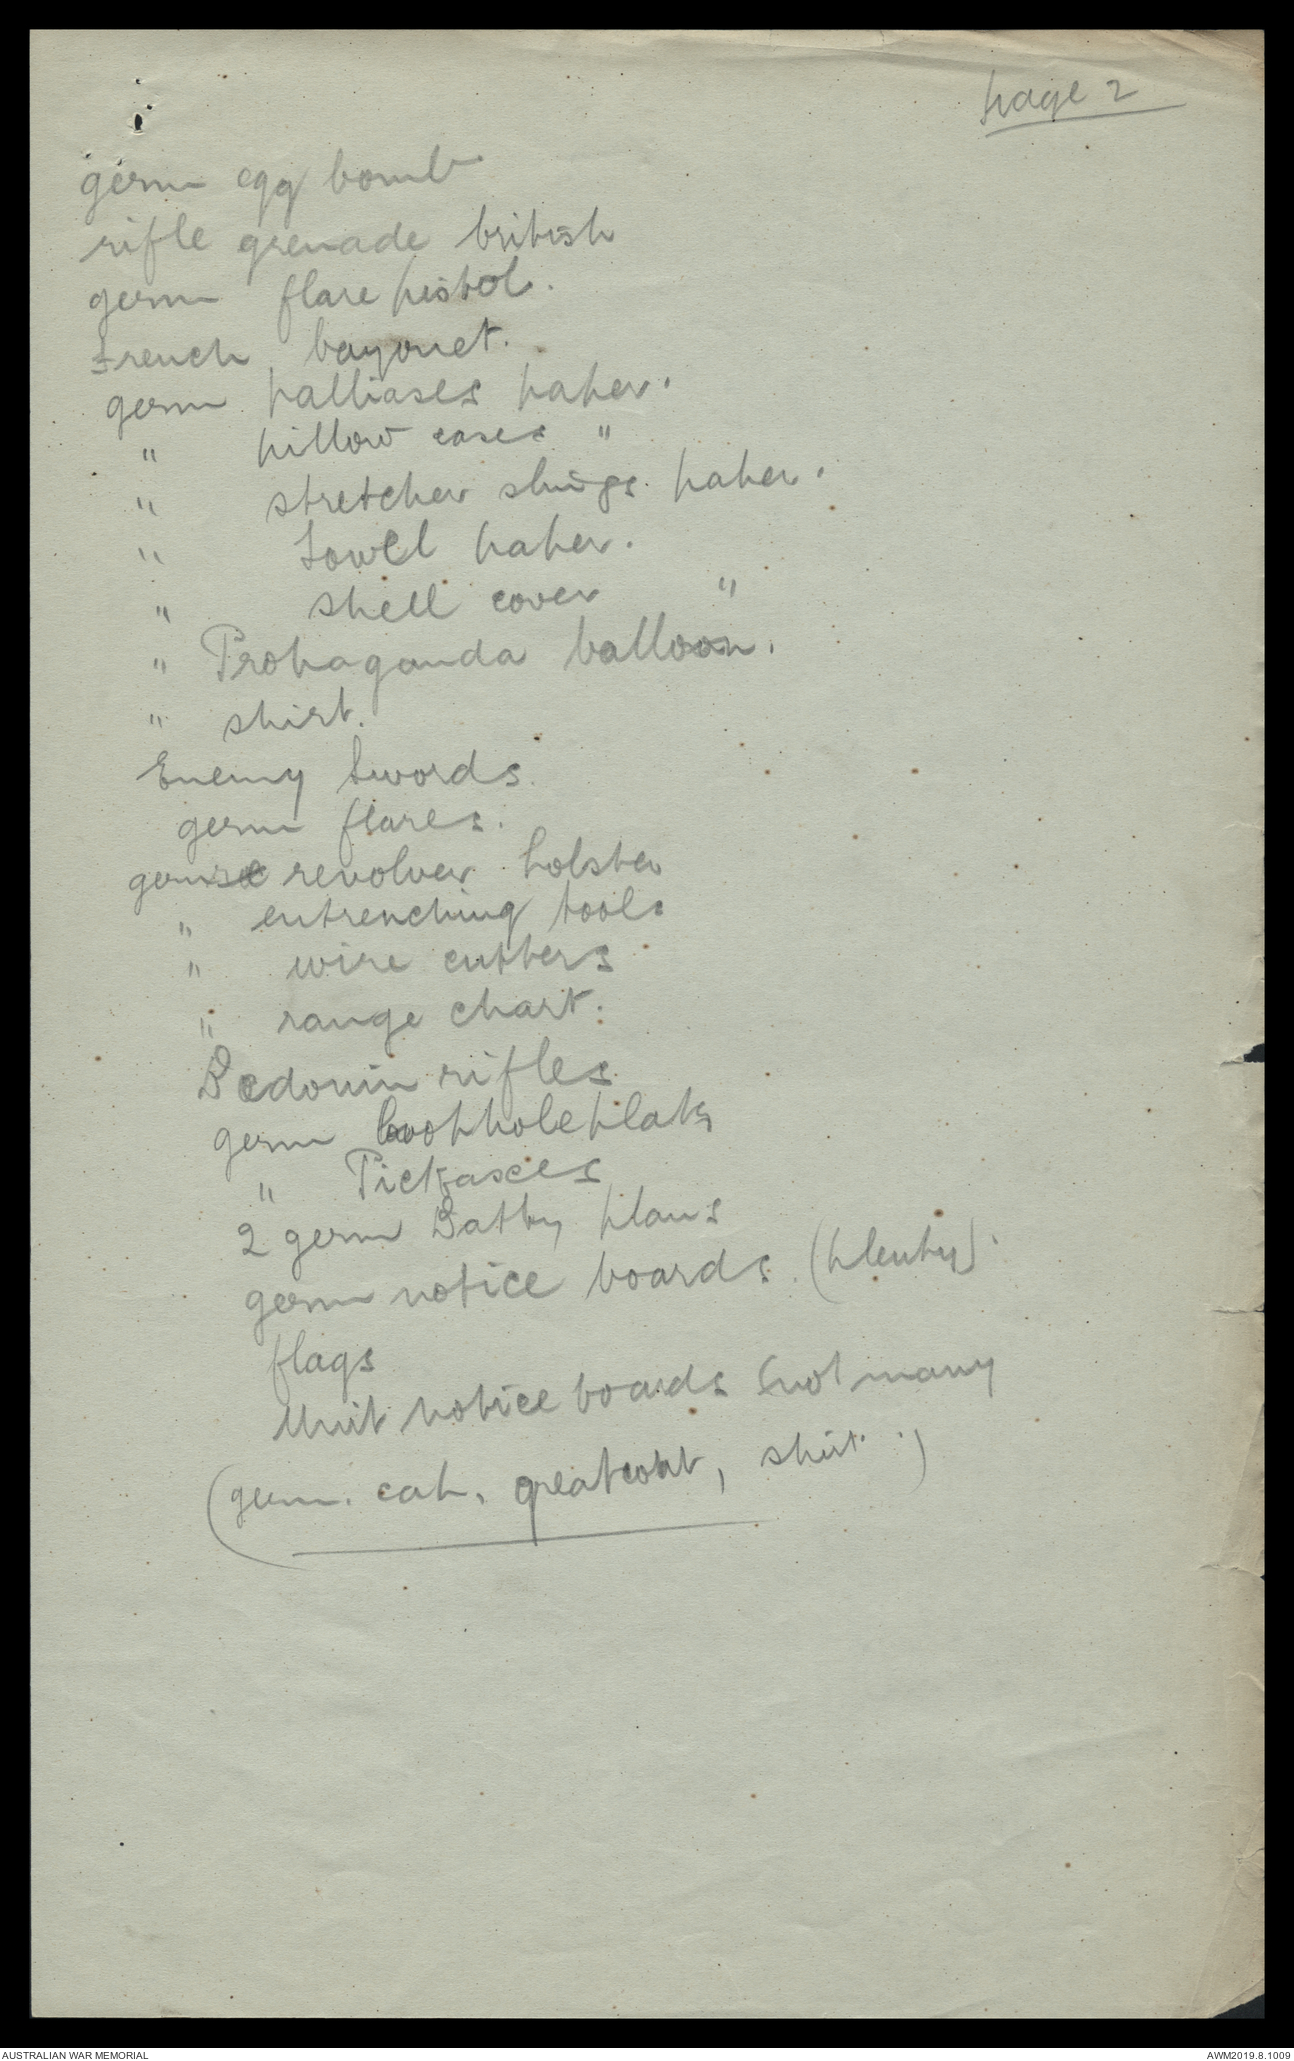 page 2
germ egg bomb
rifle grenade british
germ flare pistol.
French bayonet.
germ palliases paper.
" pillow cases "
" stretcher slings paper.
" towel paper.
" shell cover "
" Propaganda balloon.
" shirt.
Enemy Swords.
germ flares.
germ revolver holster
" entrenching tools
" wire cutters
" range chart.
Bedouin rifles
germ loophole plats
" Pickaxes
2 germ Batty plans
germ notice boards (plenty).
flags
Unit notice boards (not many
(germ. cap, greatcoat, shirt.)
AUSTRALIAN WAR MEMORIAL
AWM2019.8.1009